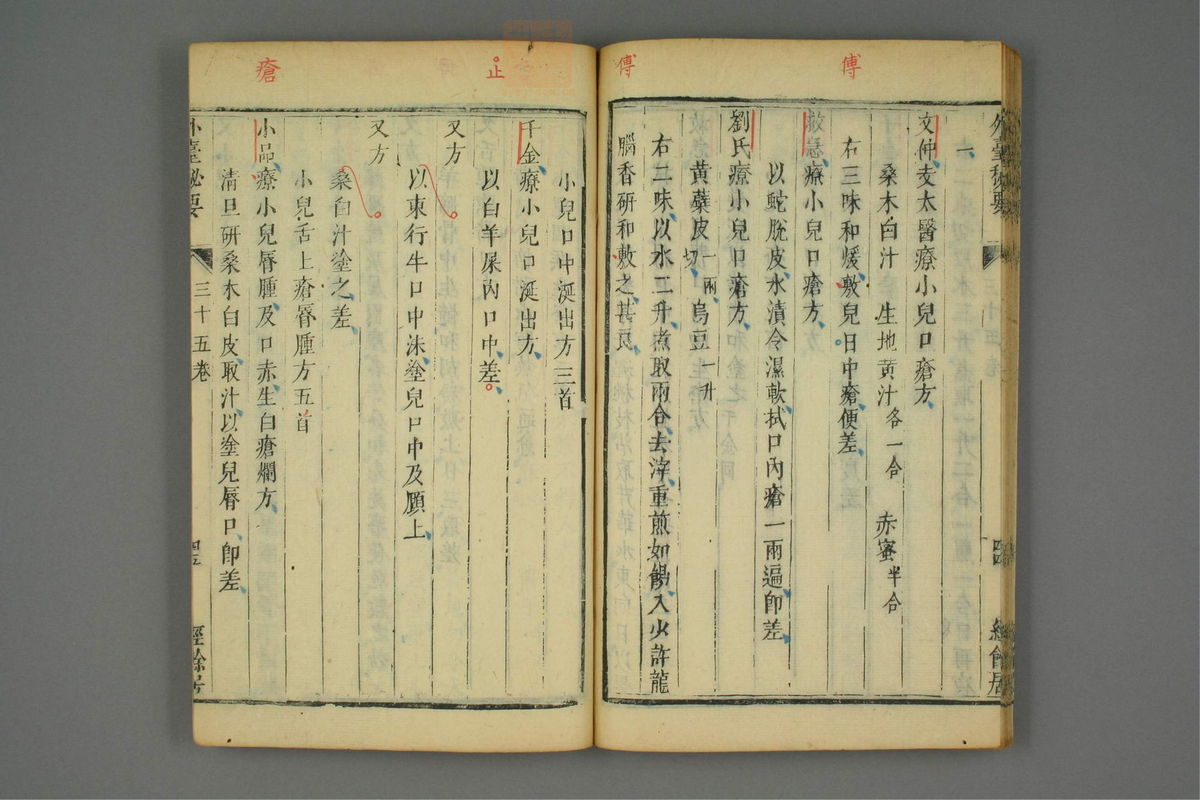 傅
傅
外臺秘要
三十五卷
經餘居
一
文仲支太醫療小兒口瘡方
桑木白汁 生地黃汁各一合 赤蜜半合
右三味和煖敷兒口中瘡便差
救急療小兒口瘡方
以蛇脫皮水漬令濕軟拭口內瘡一兩遍卽差
劉氏療小兒口瘡方
黃蘗皮一兩切 烏豆一升
右二味以水二升煮取兩合去滓重煎如餳入少許龍
腦香研和敷之甚良
止
瘡
小兒口中涎出方三首
千金療小兒口涎出方
以白羊屎內口中差
又方
以東行牛口中沫塗兒口中及頤上
又方
桑白汁塗之差
小兒舌上瘡脣腫方五首
小品療小兒脣腫及口赤生白瘡爛方
清旦研桑木白皮取汁以塗兒脣口卽差
外臺秘要
三十五卷
經餘居